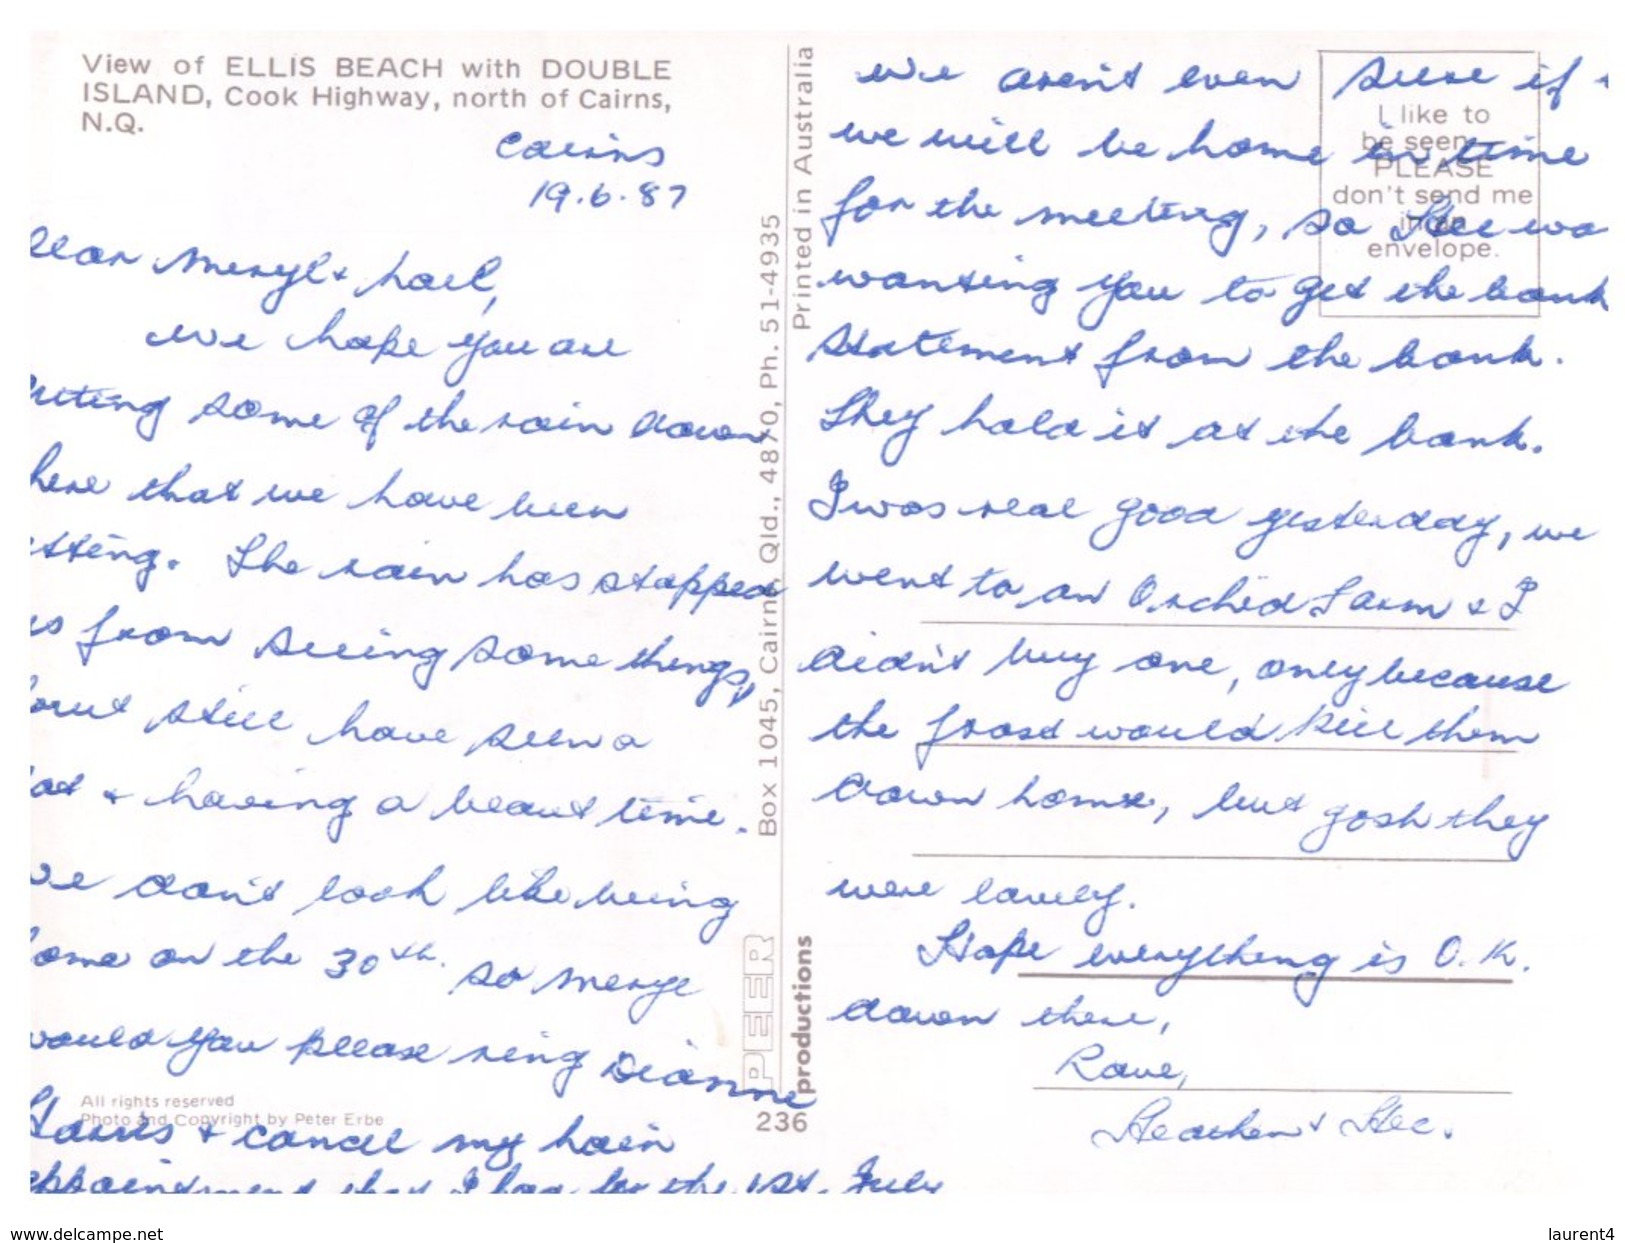 View of ELLIS BEACH with DOUBLE
ISLAND, Cook Highway, north of Cairns,
N.Q.
Cairns
19.6.87
Dear Meryl & Lael,
we hope you are
getting some of the rain down
there that we have been
getting. The rain has stopped
us from seeing some things,
but still have seen a
lot & having a beaut time.
We don't look like being
home on the 30th. so Merye
would you please ring Dianne
& cancel my hair
appointment that I had for the 1st. July
All rights reserved
Photo and Copyright by Peter Erbe
Box 1045, Cairns, Qld., 4870, Ph. 51-4935
Printed in Australia
PEER
productions
236
I like to
be seen
PLEASE
don't send me
in an
envelope.
we aren't even sure if
we will be home in time
for the meeting, so Stee was
wanting you to get the bank
statement from the bank.
They hold it at the bank.
I was real good yesterday, we
went to an Orchid Farm & I
didn't buy one, only because
the frost would kill them
down home, but gosh they
were lovely.
Hope everything is O.K.
down there,
Love,
Heather & Stee.
delcampe.net
laurent4